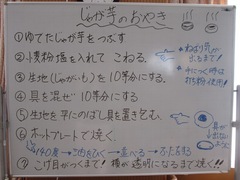 じゃが芋のおやき
①ゆでたじゃが芋をつぶす
②片栗粉塩を入れて こねる。
③生地(じゃがいも)を10等分にする。
④具を混ぜ 10等分にする。
⑤生地を平たにのばし具を置き包む。
⑥ホットプレートで焼く。
140度→油をひく→並べる→ふたする
⑦こげ目がつくまで! 種が透明になるまで焼く!!
ねばり気が
出るまで!
手につく時は